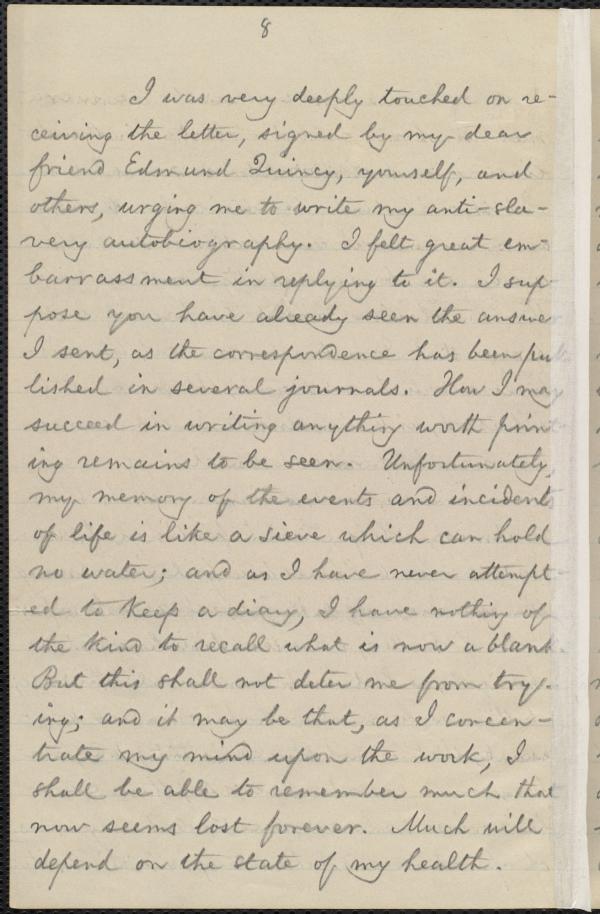 8
I was very deeply touched on re-
ceiving the letter, signed by my dear
friend Edmund Quincy, yourself, and
others, urging me to write my anti-sla-
very autobiography. I felt great em-
barrassment in replying to it. I sup-
pose you have already seen the answer
I sent, as the correspondence has been pub
lished in several journals. How I may
succeed in writing anything worth print
ing remains to be seen. Unfortunately,
my memory of the events and incidents
of life is like a sieve which can hold
no water; and as I have never attempt-
ed to keep a diary, I have nothing of
the kind to recall what is now a blank.
But this shall not deter me from try-
ing; and it may be that, as I concen-
trate my mind upon the work, I
shall be able to remember much that
now seems lost forever. Much will
depend on the state of my health.